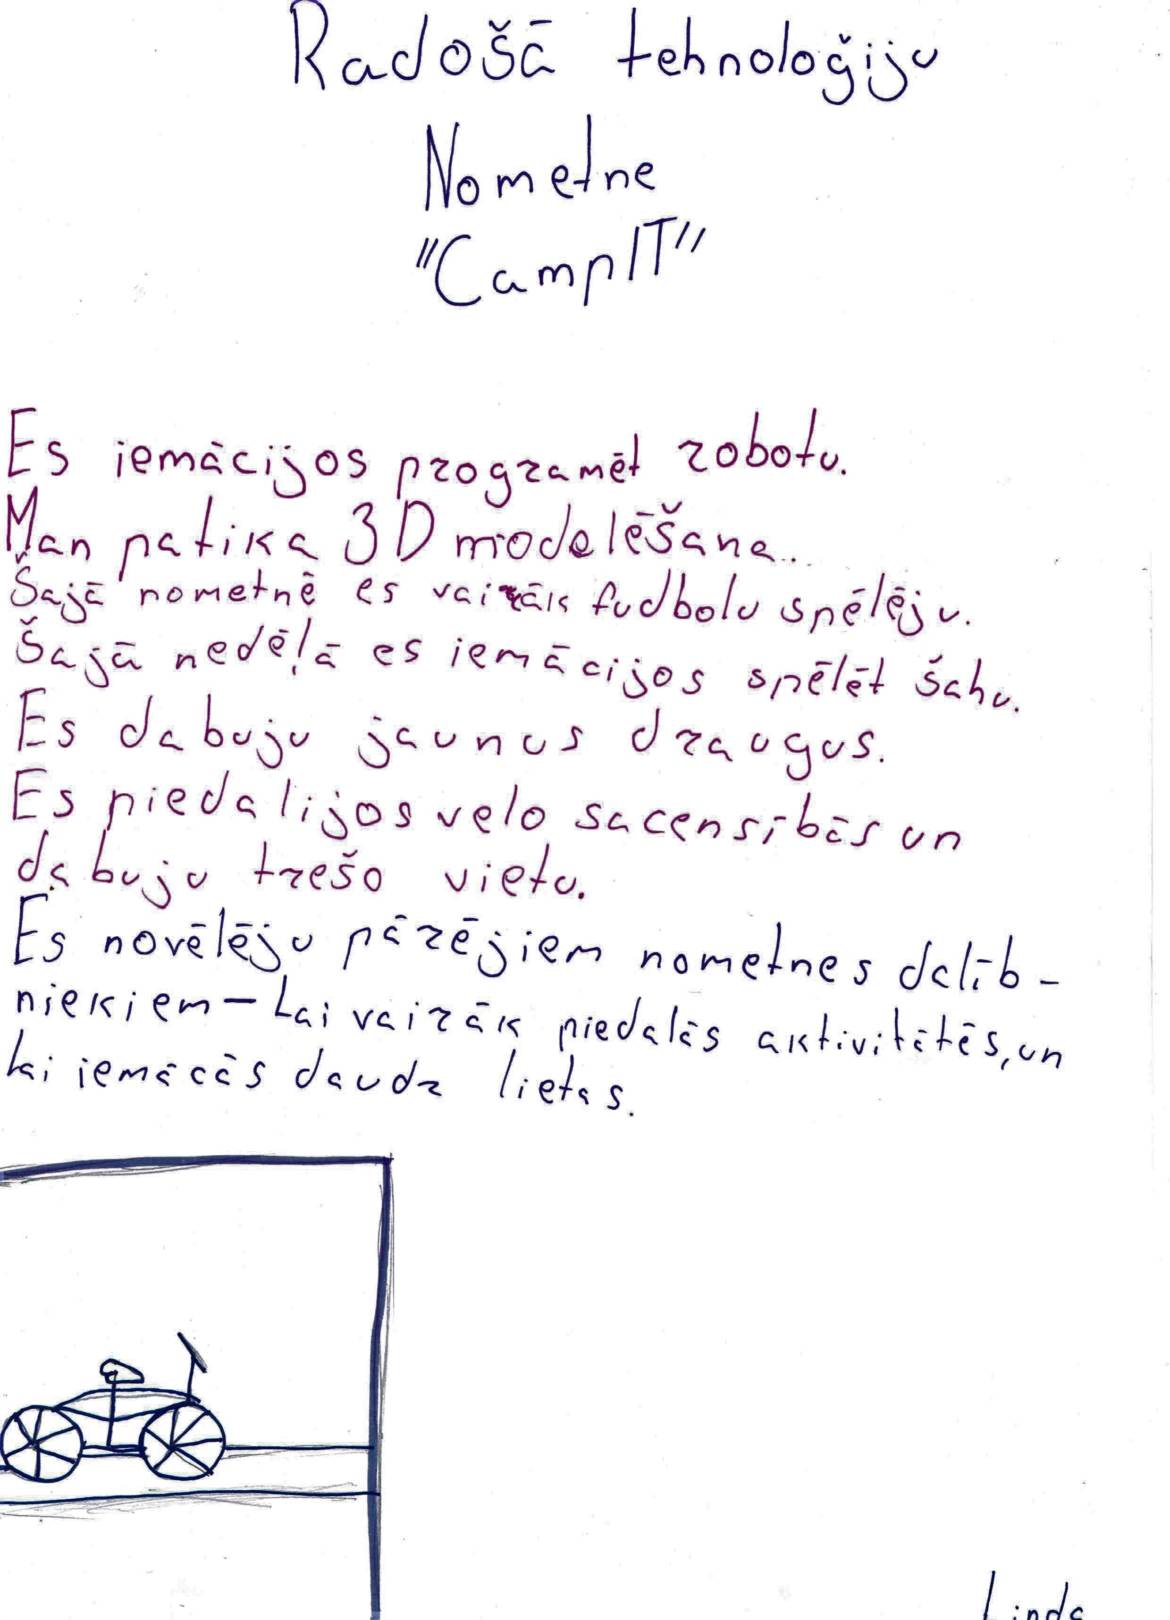 Radošā tehnoloģiju
Nometne
"CampIT"
Es iemācijos programēt robotu.
Man patika 3D modelēšana..
Šajā nometnē es vairāk fudbolu spēlēju.
Šajā nedēļā es iemācijos spēlēt šahu.
Es dabuju jaunus draugus.
Es piedalijos velo sacensībās un
dabuju trešo vietu.
Es novēlēju pārējiem nometnes dalīb-
niekiem - Lai vairāk piedalās aktivitātēs, un
lai iemācās daudz lietas.
Linda